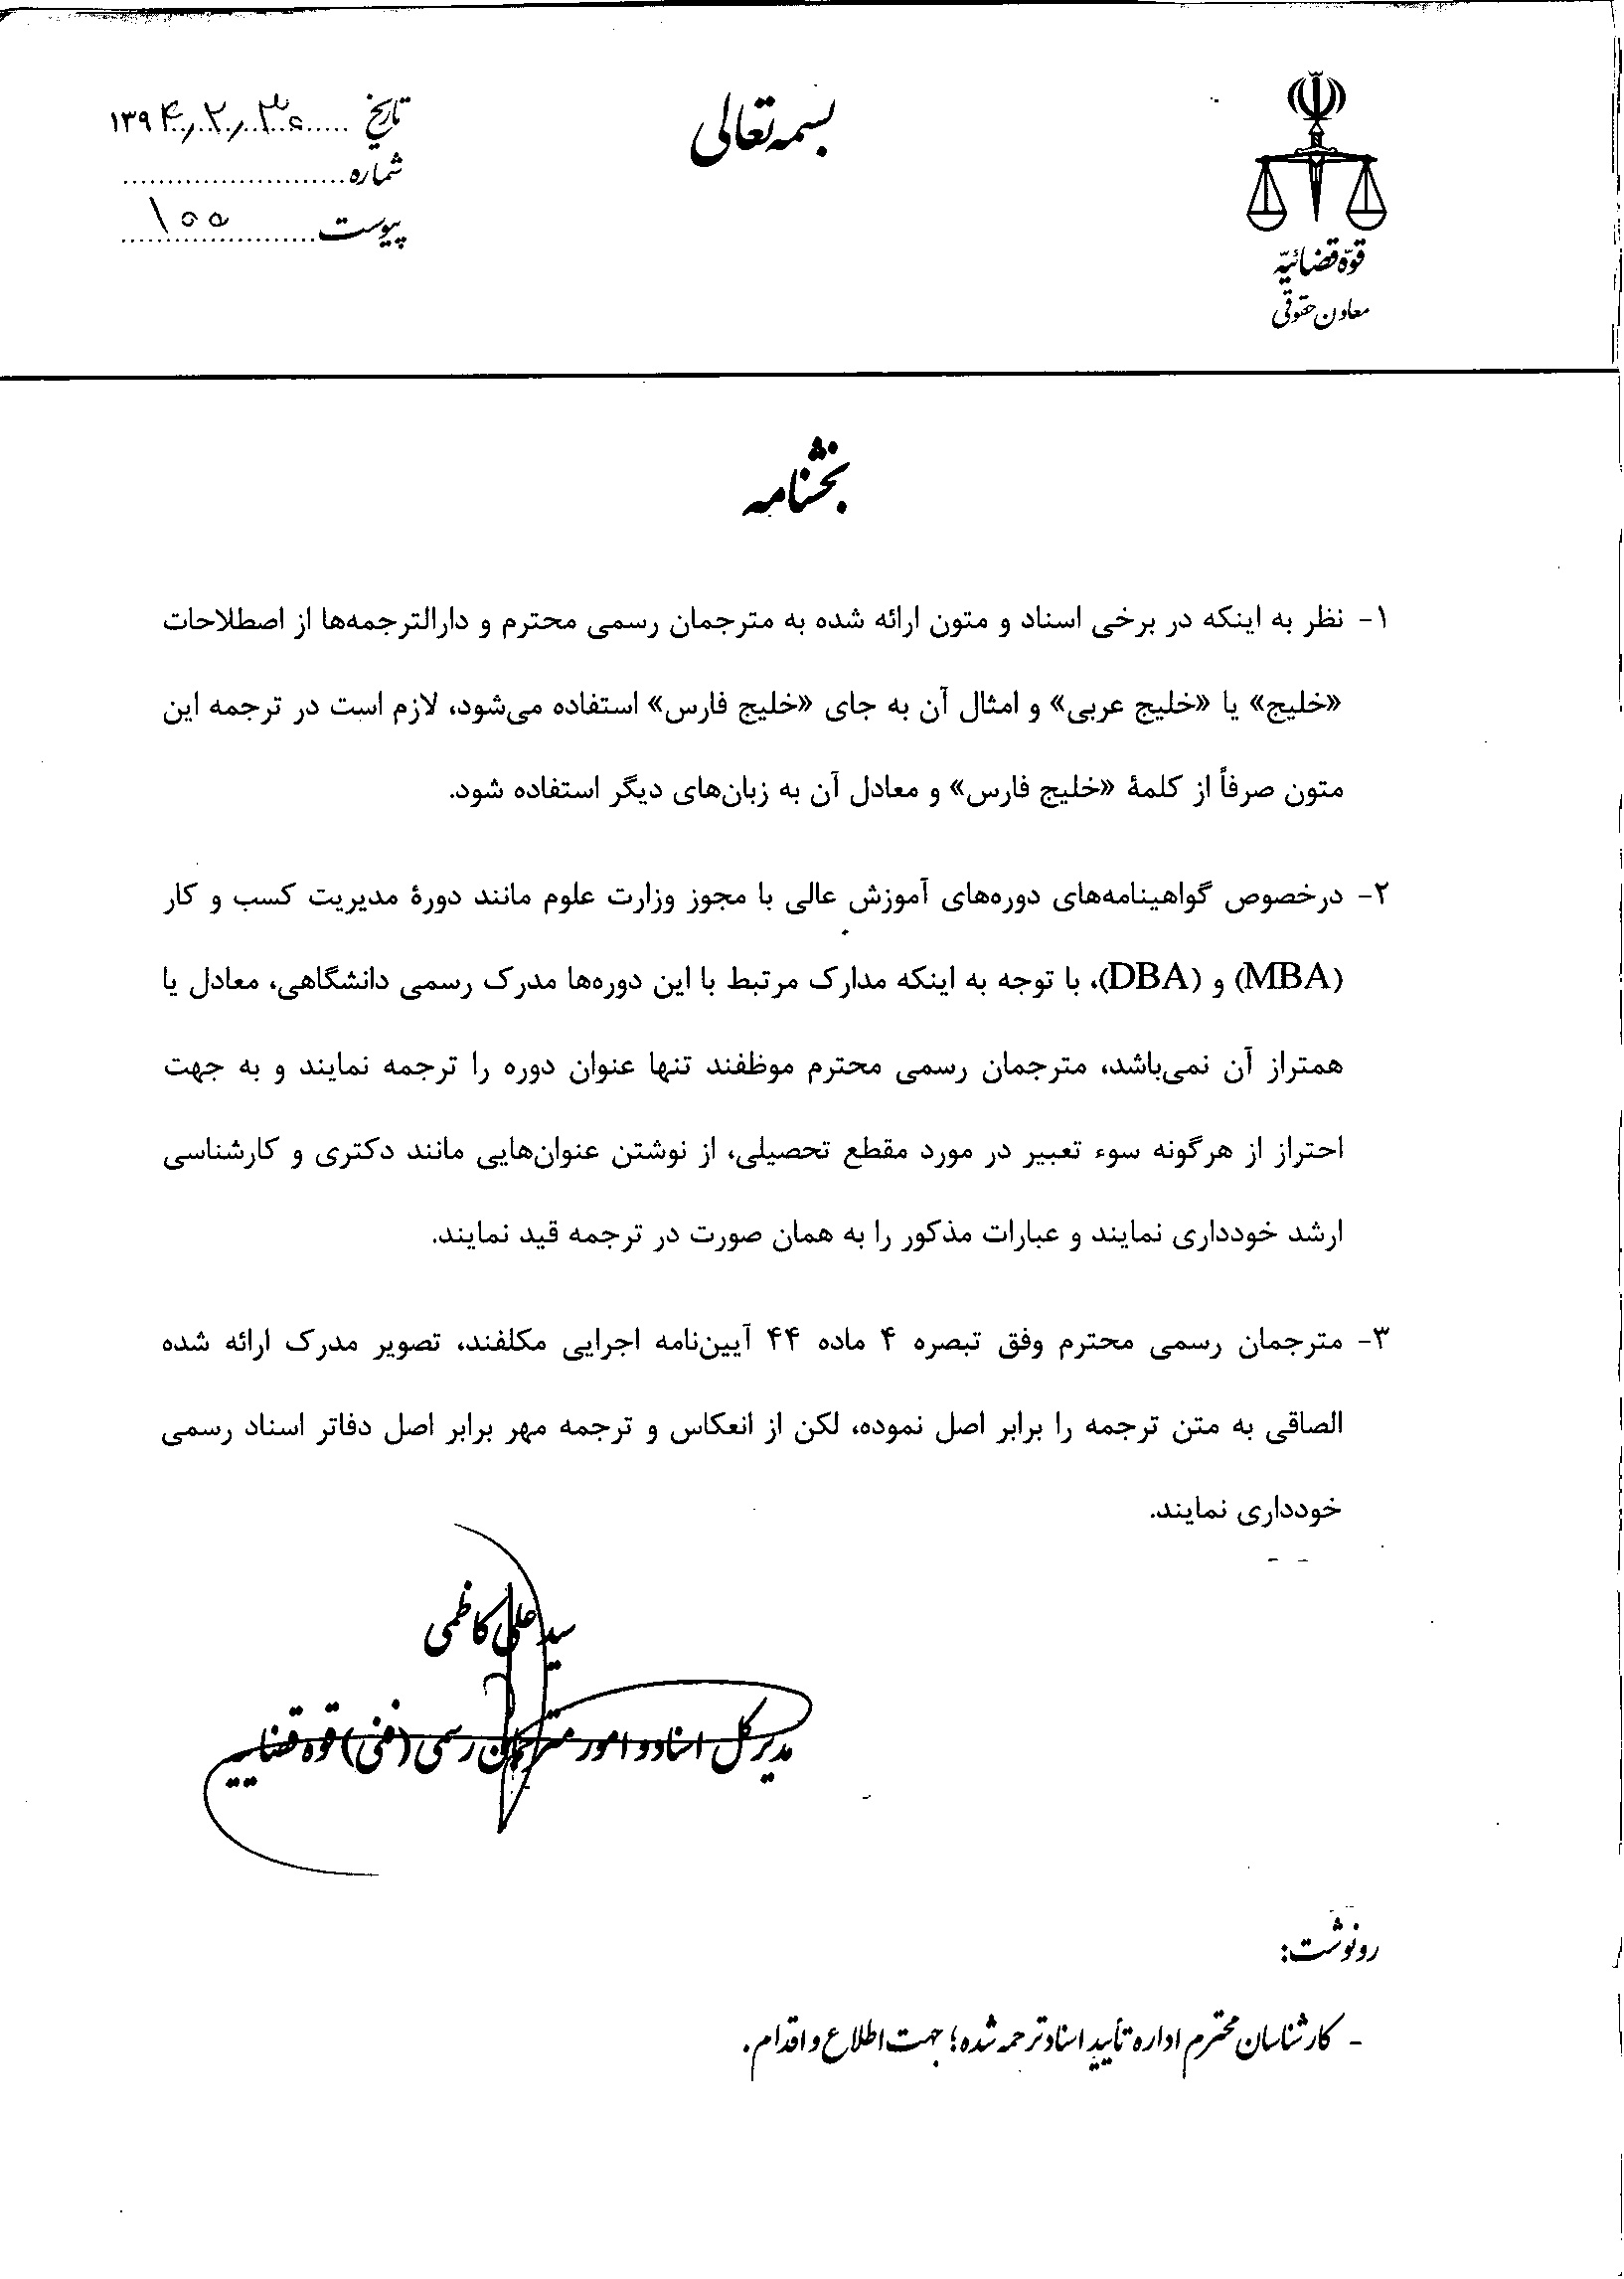 بسمه تعالی
قوّه قضائیّه
معاون حقوقی
تاریخ ۱۳۹۴/۲/۳۰
شماره
پیوست ۱۰۰
بخشنامه
۱- نظر به اینکه در برخی اسناد و متون ارائه شده به مترجمان رسمی محترم و دارالترجمه‌ها از اصطلاحات
«خلیج» یا «خلیج عربی» و امثال آن به جای «خلیج فارس» استفاده می‌شود، لازم است در ترجمه این
متون صرفاً از کلمهٔ «خلیج فارس» و معادل آن به زبان‌های دیگر استفاده شود.
۲- درخصوص گواهینامه‌های دوره‌های آموزش عالی با مجوز وزارت علوم مانند دورهٔ مدیریت کسب و کار
(MBA) و (DBA)، با توجه به اینکه مدارک مرتبط با این دوره‌ها مدرک رسمی دانشگاهی، معادل یا
همتراز آن نمی‌باشد، مترجمان رسمی محترم موظفند تنها عنوان دوره را ترجمه نمایند و به جهت
احتراز از هرگونه سوء تعبیر در مورد مقطع تحصیلی، از نوشتن عنوان‌هایی مانند دکتری و کارشناسی
ارشد خودداری نمایند و عبارات مذکور را به همان صورت در ترجمه قید نمایند.
۳- مترجمان رسمی محترم وفق تبصره ۴ ماده ۴۴ آیین‌نامه اجرایی مکلفند، تصویر مدرک ارائه شده
الصاقی به متن ترجمه را برابر اصل نموده، لکن از انعکاس و ترجمه مهر برابر اصل دفاتر اسناد رسمی
خودداری نمایند.
سید علی کاظمی
مدیر کل اسناد و امور مترجمان رسمی (فنی) قوه قضاییه
رونوشت:
- کارشناسان محترم اداره تأیید اسناد ترجمه شده؛ جهت اطلاع و اقدام.